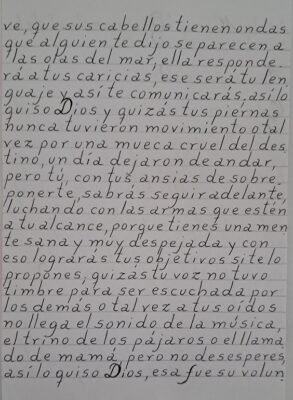 ve, que sus cabellos tienen ondas
que alguien te dijo se parecen, a
las olas del mar, ella responde.
rá a tus caricias, ese será tu len
guaje y así te comunicarás, así lo
quiso Dios y quizás tus piernas
nunca tuvieron movimiento o tal
vez por una mueca cruel del des
tino, un día dejaron de andar,
pero tú, con tus ansias de sobre
ponerte, sabrás seguir adelante,
luchando con las armas que estén
a tu alcance, porque tienes una men
te sana y muy despejada y con
eso lograrás tus objetivos si te lo
propones, quizás tu voz no tuvo
timbre para ser escuchada por
los demás o tal vez a tus oídos
no llega el sonido de la música,
el trino de los pájaros o el llama
do de mamá, pero no desesperes,
así lo quiso Dios, esa fue su volun